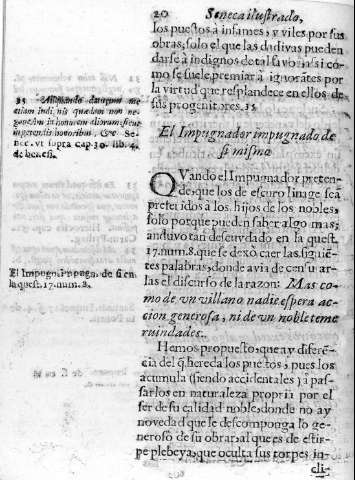 20 Seneca ilustrado,
los puestos a infames, y viles por sus
obras, solo el que las dadivas pueden
darse à indignos de tal favor, assi co-
mo se suele premiar à ignorãtes por
la virtud que resplandece en ellos de
sus progenitores. 35
35 Aliquando daturum me
etiam indignis quædam non ne-
gaverim in honorem aliorum, sicut
in petendis honoribus, &c. Se-
nec. vt supra cap. 30. lib. 4.
de benefi.
El Impugnador impugnado de
si mismo
QVando el Impugnador preten-
de, que los de escuro linage seã
preferidos à los hijos de los nobles,
solo porque pueden saber algo mas;
anduvo tan descuydado en la quest.
17. num. 8. que se dexò caer las siguiẽ-
tes palabras; donde avia de censurar-
las el discurso de la razon: Mas co-
mo de vn villano nadie espera ac-
cion generosa, ni de vn noble teme
ruindades.
El Impugn. Impug. de si en
la quest. 17. num. 8.
Hemos propuesto, que ay diferẽ-
cia del q̃ hereda los puestos, pues los
acumula (siendo accidentales) à pas-
sarlos en naturaleza propria por el
ser de su calidad noble, donde no ay
novedad que le descomponga lo ge-
neroso de su obrar, al que es de estir-
pe plebeya, que oculta sus torpes in-
cli-